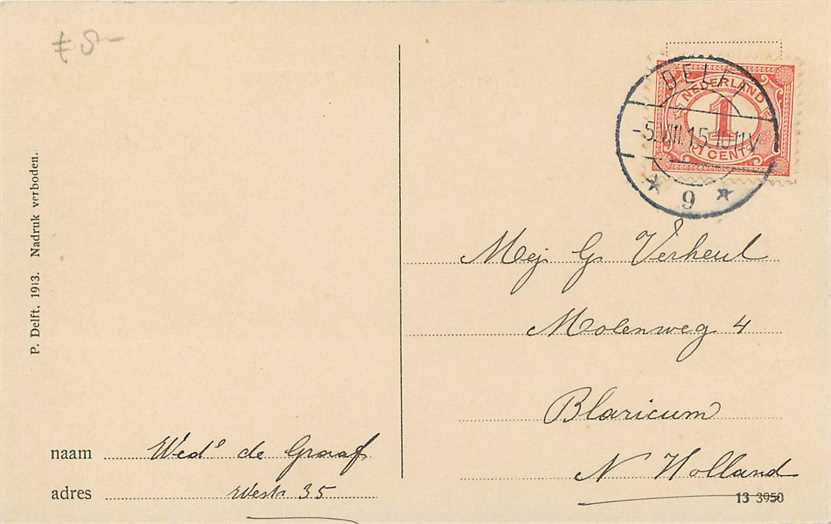 £ 8-
P. Delft. 1913. Nadruk verboden.
DELFT
-5.VIII.15 10-11V
* 9 *
NEDERLAND
1
1 CENT
Mej. G. Verheul
Molenweg 4
Blaricum
N Holland
naam Wede de Graaf
adres Westr. 35
13 3950